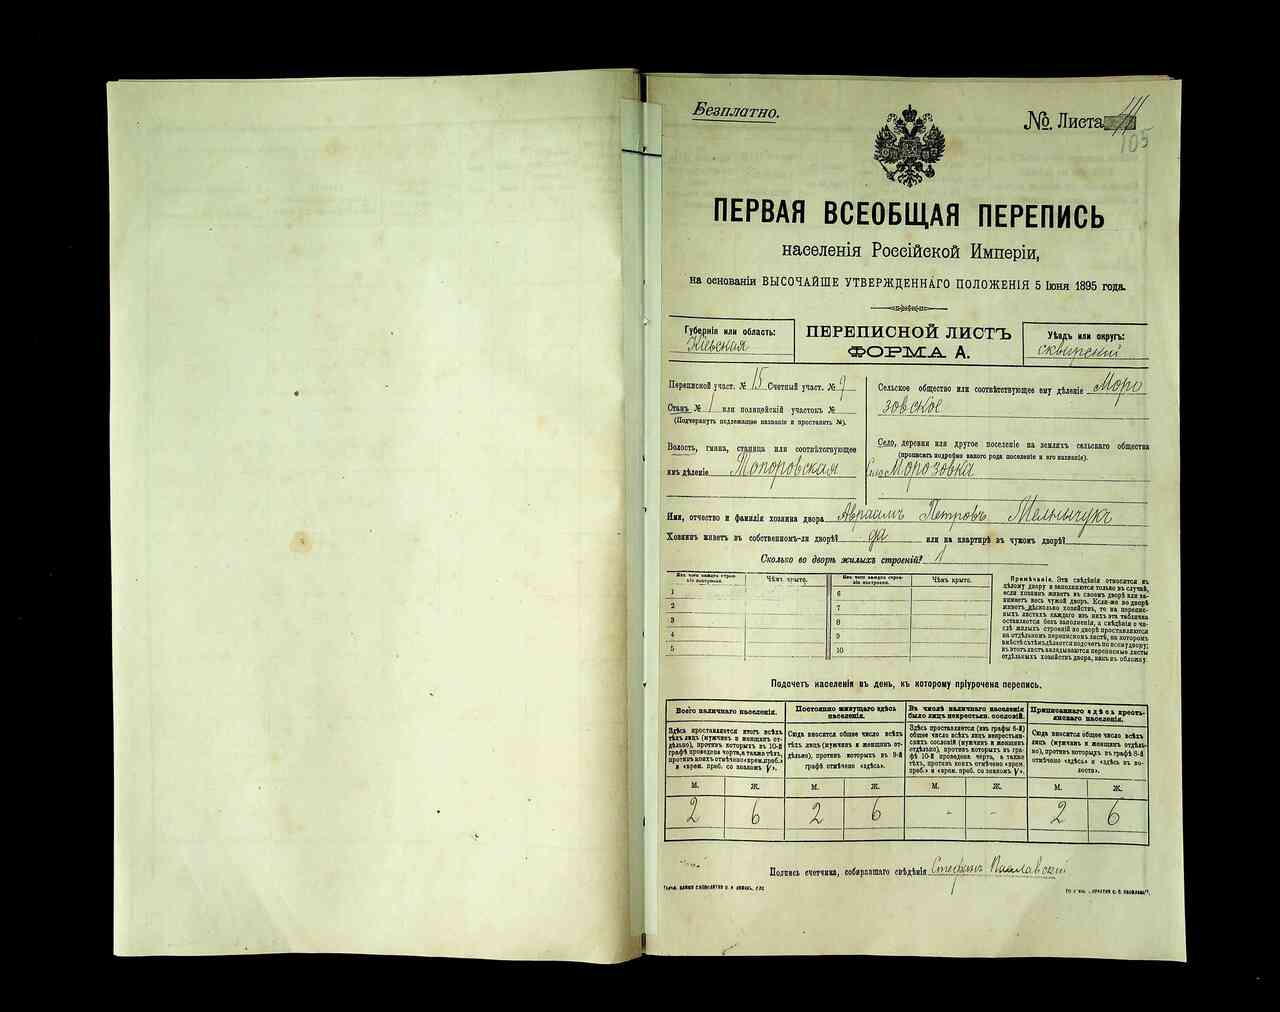 Безплатно.
№ Листа
105
ПЕРВАЯ ВСЕОБЩАЯ ПЕРЕПИСЬ
населенія Россійской Имперіи,
на основаніи ВЫСОЧАЙШЕ УТВЕРЖДЕННАГО ПОЛОЖЕНІЯ 5 Іюня 1895 года.
Губернія или область:
Кіевская
ПЕРЕПИСНОЙ ЛИСТЪ
ФОРМА А.
Уѣздъ или округъ:
сквирскій
Переписной участ. № 15 Счетный участ. № 9
Станъ № 1 или полицейскій участокъ №
(Подчеркнуть подлежащее названіе и проставить №).
Волость, гмина, станица или соотвѣтствующее
имъ дѣленіе Топоровская
Сельское общество или соотвѣтствующее ему дѣленіе Моро
зовское
Село, деревня или другое поселеніе на земляхъ сельскаго общества
(прописать подробно какого рода поселеніе и его названіе).
Село Морозовка
Имя, отчество и фамилія хозяина двора Авраамъ Петровъ Мельничукъ
Хозяинъ живетъ въ собственномъ-ли дворѣ? да или на квартирѣ въ чужомъ дворѣ?
Сколько во дворѣ жилыхъ строеній? 1
Изъ чего каждое строе-
ніе построено.
Чѣмъ крыто.
Изъ чего каждое строе-
ніе построено.
Чѣмъ крыто.
1
2
3
4
5
6
7
8
9
10
Примѣчаніе. Эти свѣдѣнія относятся къ
цѣлому двору и заполняются только въ случаѣ,
если хозяинъ живетъ въ своемъ дворѣ или за-
нимаетъ весь чужой дворъ. Если-же во дворѣ
живетъ нѣсколько хозяйствъ, то на перепис-
ныхъ листахъ каждаго изъ нихъ эта табличка
оставляется безъ заполненія, а свѣдѣнія о чи-
слѣ жилыхъ строеній во дворѣ проставляются
на отдѣльномъ переписномъ листѣ, на которомъ
вмѣстѣ съ тѣмъ дѣлается подсчетъ по всему двору;
въ этотъ листъ вкладываются переписные листы
отдѣльныхъ хозяйствъ двора, какъ въ обложку.
Подсчетъ населенія въ день, къ которому пріурочена перепись.
Всего наличнаго населенія.
Здѣсь проставляется итогъ всѣхъ
тѣхъ лицъ (мужчинъ и женщинъ от-
дѣльно), противъ которыхъ въ 10-й
графѣ проведена черта, а также тѣхъ,
противъ коихъ отмѣчено «врем. преб.»
и «врем. преб. со знакомъ V».
Постоянно живущаго здѣсь
населенія.
Сюда вносится общее число всѣхъ
тѣхъ лицъ (мужчинъ и женщинъ от-
дѣльно), противъ которыхъ въ 9-й
графѣ отмѣчено «здѣсь».
Въ числѣ наличнаго населенія
было лицъ некрестьян. сословій.
Здѣсь проставляется (изъ графы 6-й)
общее число всѣхъ лицъ некрестьян-
скихъ сословій (мужчинъ и женщинъ
отдѣльно), противъ которыхъ въ гра-
фѣ 10-й проведена черта, а также
тѣхъ, противъ коихъ отмѣчено «врем.
преб.» и «врем. преб. со знакомъ V».
Приписаннаго здѣсь кресть-
янскаго населенія.
Сюда вносится общее число всѣхъ
лицъ (мужчинъ и женщинъ отдѣль-
но), противъ которыхъ въ графѣ 8-й
отмѣчено «здѣсь» и «здѣсь въ во-
лости».
М. Ж. М. Ж. М. Ж. М. Ж.
2 6 2 6 - - 2 6
Подпись счетчика, собиравшаго свѣдѣнія Стефанъ